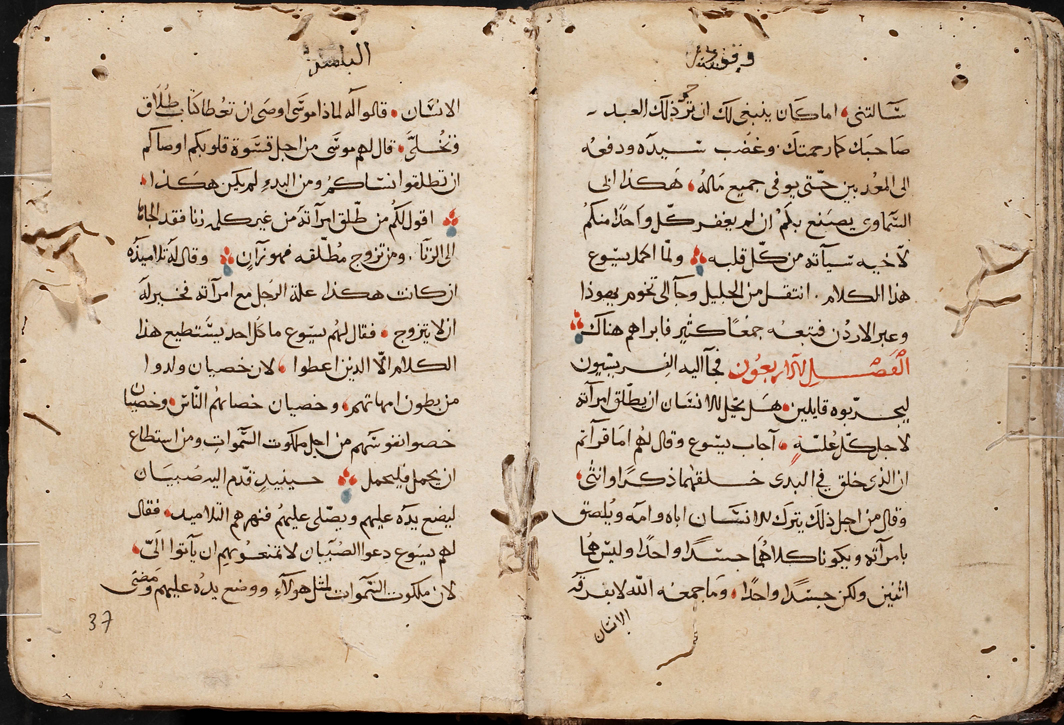 سالتني، اما كان ينبغي لك ان ترحم ذلك العبد
صاحبك كما رحمتك. وغضب سيده ودفعه
الى المعذبين حتى يوفي جميع ماله، هكذا ابي
السماوي يصنع بكم ان لم يغفر كل واحدا منكم
لاخيه سيآته من كل قلبه ولما اكمل يسوع
هذا الكلام. انتقل من الجليل وجا الى تخوم يهوذا
وعبر الاردن فتبعه جمعا كثير فابراهم هناك
الفصل الاربعون فجآ اليه الفريسيون
ليجربوه قايلين، هل يحل للانسان ان يطلق امرآته
لاجل كل علة، آجاب يسوع وقال لهم اما قرآتم
ان الذي خلق في البدى خلقهما ذكرا وانثى،
وقال من اجل ذلك يترك للانسان اباه وامه ويلصق
بامرآته ويكونا كلاهما جسدا واحدا وليس هما
اثنين ولكن جسدا واحدا، وما جمعه الله لا يفرقه
الانسان
الانسان، قالوا له لماذا موسى اوصى ان تعطا كتاب طلاق
وتخلى، قال لهم موسى من اجل قسوة قلوبكم اوصاكم
ان تطلقوا نساكم ومن البدو لم يكن هكذا،
اقول لكم من طلق امرآته من غير كلمه زنا فقد الجاها
الى الزنا، ومن تزوج مطلقه فهو زآن وقال له تلاميذه
ان كانت هكذا علة الرجل مع امرآته فخير له
ان لا يتزوج، فقال لهم يسوع ما كل احد يستطيع هذا
الكلام الا الذين اعطوا، لان خصيان ولدوا
من بطون امهاتهم، وخصيان خصاهم الناس، وخصيان
خصوا نفوسهم من اجل ملكوت السموات ومن استطاع
ان يحمل فليحمل حينيذ قدم اليه صبيان
ليضع يده عليهم ويصلى عليهم فنهرهم التلاميذ، فقال
لهم يسوع دعوا الصبيان لا تمنعوهم ان يآتوا الي،
لان ملكوت السموات لمثل هولآء ووضع يده عليهم ومضى
37